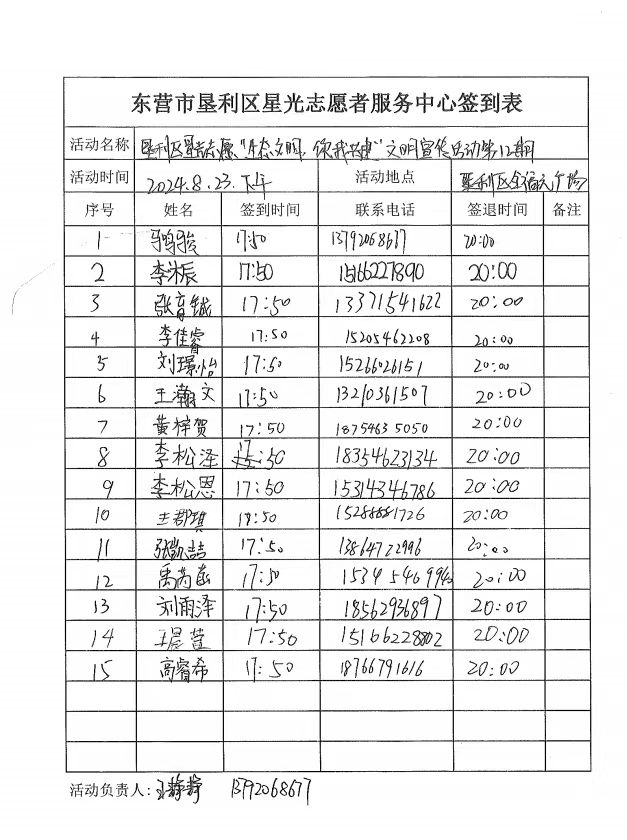 东营市垦利区星光志愿者服务中心签到表
活动名称 垦利区星光志愿"生态文明,你我共建"文明宣传活动第12期
活动时间 2024.8.23.下午 活动地点 垦利区全福元广场
序号 姓名 签到时间 联系电话 签退时间 备注
1 17:50 13792068677 20:00
2 李沐辰 17:50 15166227890 20:00
3 张育铖 17:50 13371541622 20:00
4 李佳睿 17:50 15205462208 20:00
5 刘璟怡 17:50 15266026151 20:00
6 王瀚文 17:50 13210361507 20:00
7 黄梓贺 17:50 18754635050 20:00
8 李松泽 17:50 18354623134 20:00
9 李松恩 17:50 15314346786 20:00
10 王郡琪 18:50 20:00
11 张凯喆 17:50 13864722996 20:00
12 17:50 20:00
13 刘雨泽 17:50 18562936897 20:00
14 王晨萱 17:50 15166228802 20:00
15 高睿希 17:50 18766791616 20:00
活动负责人: 王静静 13792068677